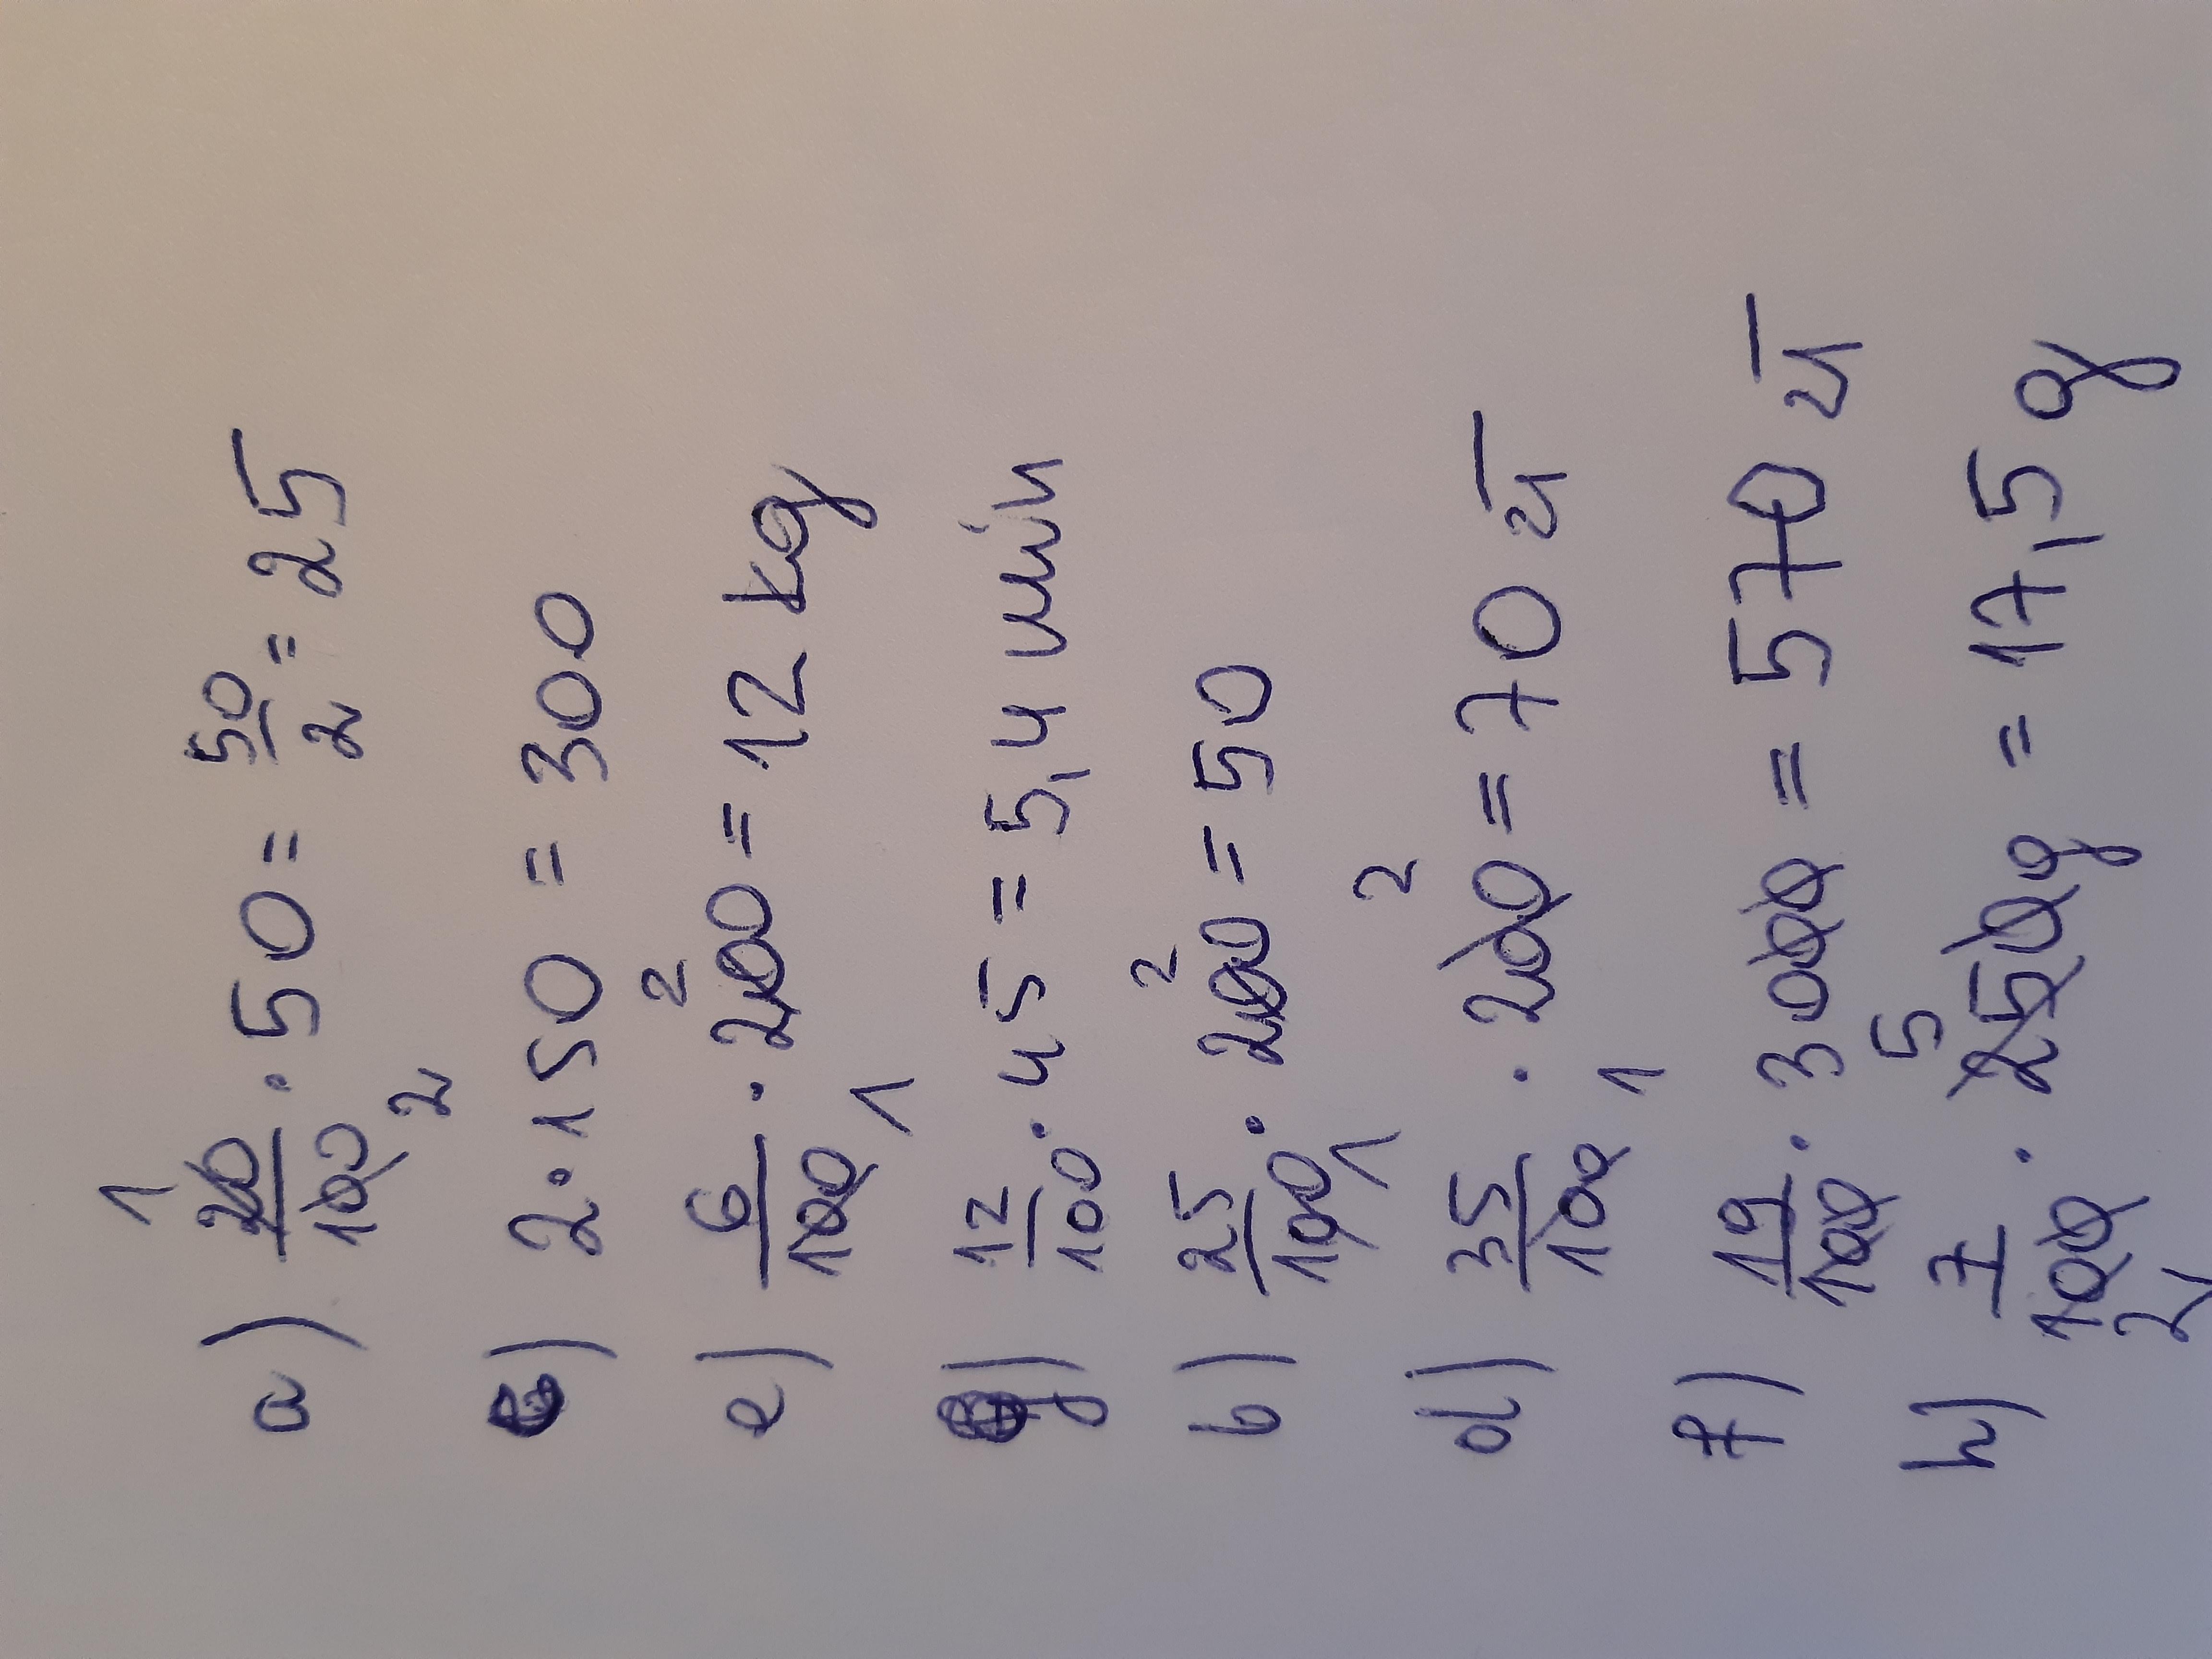 a) 50/100 1 2 · 50 = 50/2 = 25
c) 2 · 150 = 300
e) 6/100 1 · 200 2 = 12 kg
g) 12/100 · 45 = 5,4 min
b) 25/100 1 · 200 2 = 50
d) 35/100 1 · 200 2 = 70 zł
f) 19/100 · 3000 = 570 zł
h) 7/100 2 · 250g 5 = 17,5 g